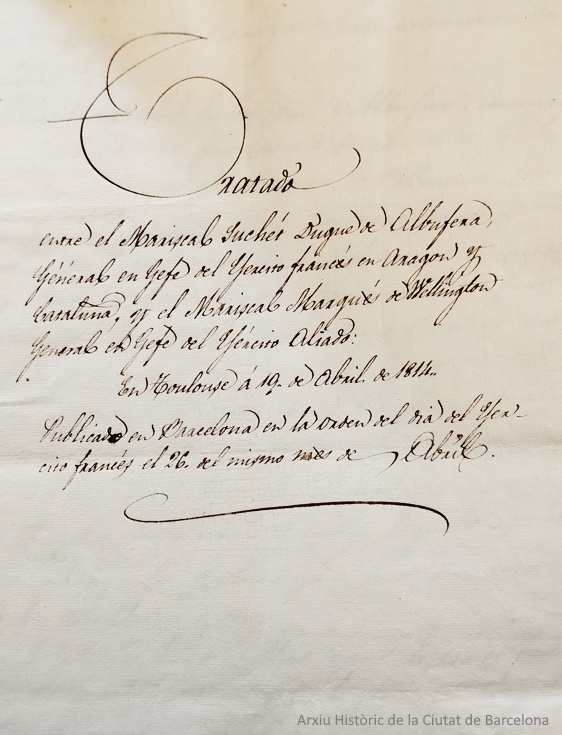 Tratado
entre el Mariscal Suchét Duque de Albufera,
Général en Gefe del Egercito francés en Aragon y
Cataluña, y el Mariscal Marqués de Wellington
General en Gefe del Egército Aliado:
En Toulouse á 19. de Abril de 1814.
Publicado en Barcelona en la orden del dia del Eger-
cito francés el 26. del mismo mes de Abril.
Arxiu Històric de la Ciutat de Barcelona